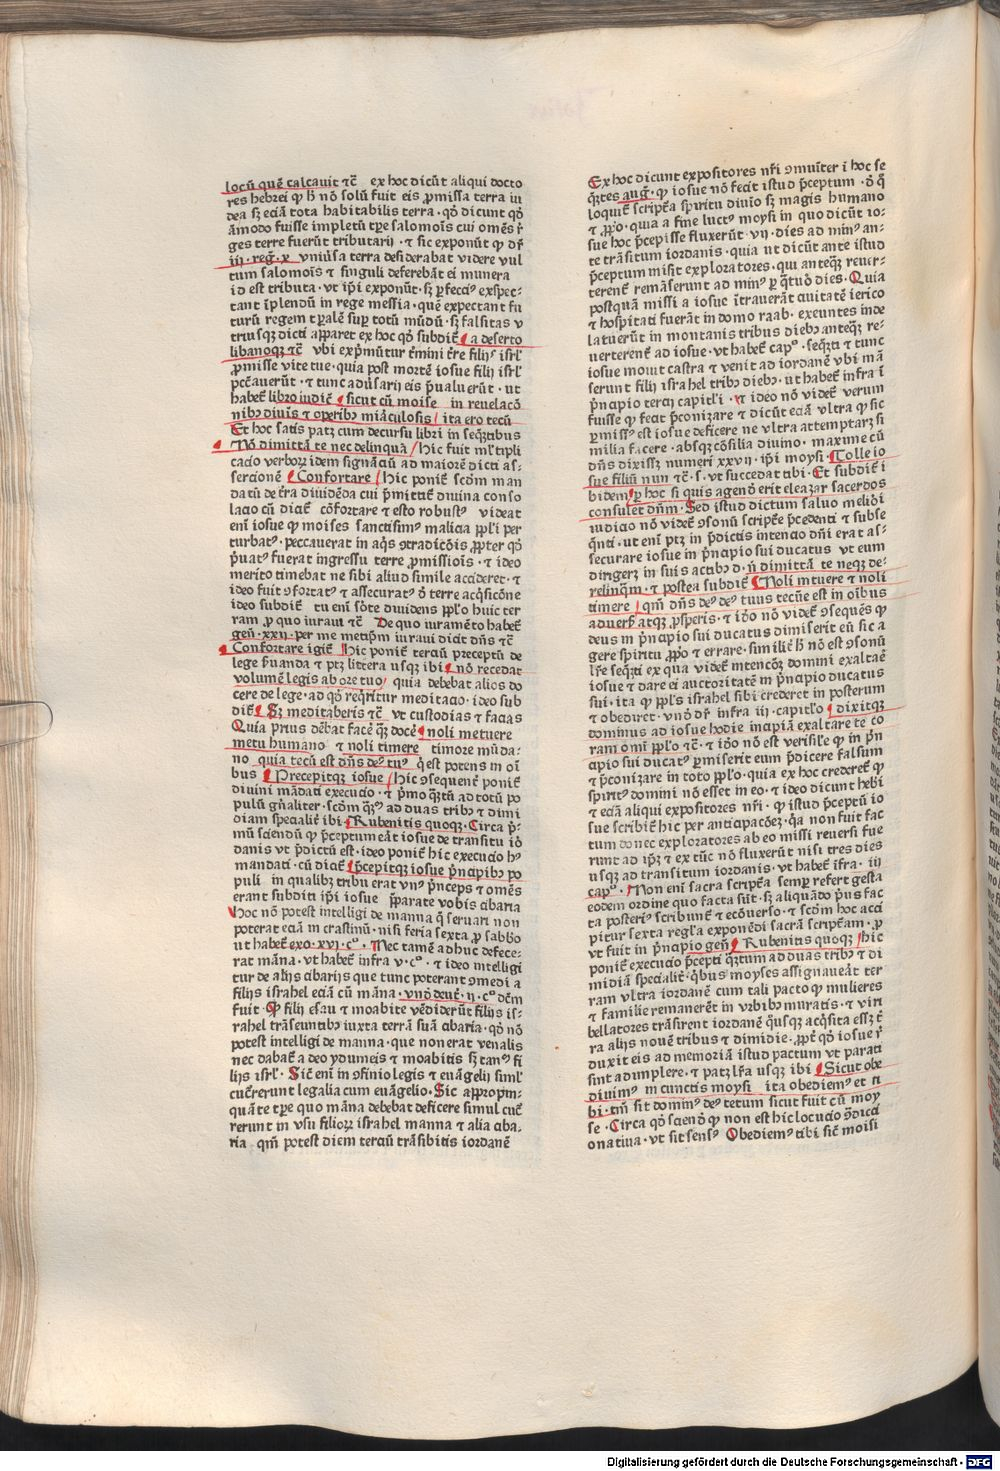 locū quē calcauit ⁊c̄ ex hoc dicūt aliqui docto
res hebrei ꝙ h̄ nō solū fuit eis ꝓmissa terra iu
dea sꝫ eciā tota habitabilis terra · qđ dicunt qđ
āmodo fuisse impletū tꝑe salomōis cui omēs r̄
ges terre fuerūt tributarij · ⁊ sic exponūt ꝙ dr̄
iij · reḡ · x vniūsa terra desiderabat videre vul
tum salomoīs ⁊ singuli deferebāt ei munera
id est tributa · vt ip̄i exponūt · sꝫ ꝑfeccꝰ exspec-
tant īplendū in rege messia · quē expectant fu
turū regem tꝑalē suꝑ totū mūdū · sꝫ falsitas v
triusqꝫ dicti apparet ex hoc qđ subdit̄ a deserto
libanoqꝫ ⁊c̄ vbi exp̄mūtur t̄mini t̄re filijs isrl̓
ꝓmisse vite tue · quia post mortē iosue filij isrl̓
pctāuerūt · ⁊ tunc aduersarij eis p̄ualuerūt · ut
habet̄ libro iudicū sicut cū moise in reuelacō
nibꝰ diuīs ⁊ operibꝰ mirāculosis ita ero tecū
Et hoc satis patꝫ cum decursu libri in seqn̄tibus
Nō dimittā te nec delinquā Hic fuit ml̓tipli
cacio verborꝫ idem signāciū ad maiorē dicti as-
sercionē Confortare Hic ponit̄ scđm man
datū de t̄ra diuidēda cui p̄mittit̄ diuina conso
lacio cū dicit̄ cōfortare ⁊ esto robustꝰ videat
enī iosue ꝙ moises sanctisimꝰ malicia ppl̓i per
turbatꝰ · peccauerat in aq̄s ꝯtradictōis ꝓpter qđ
p̄uatꝰ fuerat ingressu terre ꝓmissiōis · ⁊ ideo
merito timebat ne sibi aliud simile accideret · ⁊
ideo fuit ꝯfortatꝰ ⁊ assecuratꝰ đ terre acq̄sicōne
ideo subdit̄ tu enī sōte diuidens ppl̓o huic ter
ram ꝓ quo iuraui ⁊c̄ De quo iuramēto habet̄
geñ · xxij · per me metip̄m iuraui dicit dn̄s ⁊c̄
Confortare igit̄ Hic ponit̄ terciū preceptū de
lege s̄uanda ⁊ ptꝫ littera usqꝫ ibi nō recedat
volumē legis ab ore tuo quia debebat alios do
cere de lege · ad qđ req̄ritur meditacio · ideo sub
dit̄ Sꝫ meditaberis ⁊c̄ vt custodias ⁊ facias
Quia prius dēbat facē q̄ꝫ docē noli metuere
metu humano ⁊ noli timere timore mūda-
no quia tecū est dn̄s deꝰ tuꝰ q̄ est potens in oī
bus Precepitqꝫ iosue Hic ꝯsequent̄ ponit̄
diuini mādati execucio · ⁊ p̄mo q̄ꝫtū ad totū po
pulū gn̄aliter · scđm q̄ꝫꝰ ad duas tribꝰ ⁊ dimi
diam spēcialit̄ ibi Rubenitis quoqꝫ · Circa p̄-
mū sciendū ꝙ p̄ceptum eāt iosue de transitu iō
danis vt p̄dictū est · ideo ponit̄ hic execucio hꝰ
mandati · cū dicit̄ p̄cepitqꝫ iosue p̄ncipibꝰ po
puli in qualibꝫ tribu erat vnꝰ p̄nceps ⁊ omēs
erant subditi iosue p̄parate vobis cibaria
Hoc nō potest intelligi de manna q̄ seruari non
poterat eciā in crastinū · nisi feria sexta ꝓ sabb̓o
ut habet̄ exo · xvi · cº · Nec tamē adhuc defece-
rat māna · vt habet̄ infra v · cº · ⁊ ideo intelligi
tur de alijs cibarijs que tunc poterant ꝯmedi a
filijs israhel eciā cū māna · vnđ deut̄ · ij · cº dc̄m
fuit · ꝙ filij esau ⁊ moabite vēdiderūt filijs is-
rahel trāseuntibꝰ iuxta terrā suā cibaria · qđ nō
potest intelligi de manna · que non erat venalis
nec dabat̄ a deo ydumeis ⁊ moabitis sꝫ tanꝰ fi
lijs isrl̓ · Sic̄ enī in ꝯfinio legis ⁊ euāgelij siml̓
cuc̄rerunt legalia cum euāgelio · Sic appropin-
quāte tꝑe quo māna debebat deficere simul cuc̄
rerunt in vsu filiorꝫ israhel manna ⁊ alia ciba-
ria · qm̄ potest diem terciū trāsibitis iordanē
Ex hoc dicunt expositores nr̄i ꝯmuīter ī hoc se
q̄ntes auḡ · ꝙ iosue nō fecit istud p̄ceptum · đ q̄
loquit̄ scripta spiritu diuīo sꝫ magis humano
⁊ ꝓp̓o · quia a fine luctꝰ moysi in quo dicūt io-
sue hoc p̄cepisse fluxerūt · vij · dies ad minꝰ an-
te trāsitum iordanis · quia ut dicūt ante istud
p̄ceptum misit exploratores · qui anteqꝫ reuer-
terent̄ remāserunt ad minꝰ ꝑ q̄tuō dies · Quia
postquā missi a iosue ītrauerāt ciuitatē ierico
⁊ hospitati fuerāt in domo raab · exeuntes inde
latuerūt in montanis tribus diebꝰ anteqꝫ re-
uerterent̄ ad iosue · vt habet̄ capº · seqn̄ti ⁊ tunc
iosue mouit castra ⁊ venit ad iordanē vbi mā
serunt filij israhel tribꝰ diebꝰ · ut habet̄ infra ī
p̄ncipio tercij capitl̓i · ⁊ ideo nō videt̄ verum
fuisse ꝙ fecit p̄conizare ⁊ dicūt eciā vltra ꝙ sic
ꝑmissꝰ est iosue deficere ne vltra attemptarꝫ si
milia facere · absqꝫ cōsilia diuino · maxume cū
dn̄s dixissꝫ numeri xxvij · ip̄i moysi · Tolle io
sue filiū nun ⁊c̄ · s · vt succedat tibi · Et subdit̄ ī
bidem ꝑ hoc si quis agenđ erit eleazar sacerdos
consulet dn̄m · Sed istud dictum saluo meliori
iudicio nō videt̄ ꝯsonū scripte p̄cedenti ⁊ subse
q̄nti · ut enī ptꝫ in p̄dictis intencio dn̄i erat as-
securare iosue in p̄ncipio sui ducatus vt eum
dirigerꝫ in suis actibꝰ đ · n̄ dimittā te neqꝫ de-
relinquā · ⁊ postea subdit̄ Noli metuere ⁊ noli
timere qm̄ dn̄s deꝰ tuus tecū est in oībus
aduersis atqꝫ ꝓsperis · ⁊ iđo nō videt̄ ꝯsequēs ꝙ
deus in p̄ncipio sui ducatus dimiserit eū sic a
gere spiritu ꝓp̓o ⁊ errare · similit̄ h̄ nō est ꝯsonū
lr̄e seqn̄ti ex qua videt̄ intencōꝫ domini exaltar̄
iosue ⁊ dare ei auctoritatē in p̄ncipio ducatus
sui · ita ꝙ ppl̓s israhel sibi crederet in posterum
⁊ obediret · vnđ dr̄ infra iij · capitl̓o dixitqꝫ
dominus ad iosue hodie incipiā exaltare te co
ram omī ppl̓o ⁊c̄ · ⁊ iđo nō est verisile ꝙ in p̄n
cipio sui ducatꝰ ꝑmiserit eum p̄dicere falsum
⁊ p̄conizare in toto ppl̓o · quia ex hoc crederet̄ ꝙ
spiritꝰ domini nō esset in eo · ⁊ ideo dicunt heb̓i
⁊ eciā aliqui expositores nr̄i · ꝙ istud p̄ceptū io
sue scribit̄ hic per anticipacōeꝫ · q̄a non fuit fac
tum donec exploratores ab eo missi reuersi fue
runt ad ip̄ꝫ ⁊ ex tūc nō fluxerūt nisi tres dies
usqꝫ ad transitum iordanis · vt habet̄ īfra · iij
capº · Non enī sacra scripta semꝑ refert gesta
eodem ordine quo facta sūt · sꝫ aliquādo p̄us fac
ta posteriꝰ scribunt̄ ⁊ ecōuerso · ⁊ scđm hoc acci
pitur sexta regl̓a exponēdi sacrā scripturam · ꝓ
vt fuit in p̄ncipio geñ Rubenitis quoqꝫ Hic
ponit̄ execucio p̄cepti q̄ꝫtum ad duas tribꝰ ⁊ di
midiā specialit̄ · q̄bus moyses assignauēat ter
ram vltra iordanē cum tali pacto ꝙ mulieres
⁊ familie remanerēt in vrbibꝰ muratis · ⁊ viri
bellatores trāsirent iordanē q̄usqꝫ acq̄sita essꝫ t̄
ra alijs nouē tribus ⁊ dimidie · ꝓpt̄ qđ iosue r̄
duxit eis ad memoriā istud pactum vt parati
sint adimplere · ⁊ patꝫ lr̄a usqꝫ ibi Sicut obe
diuimꝰ in cunctis moysi ita obediemꝰ et ti
bi · tm̄ sit dominꝰ deꝰ tecum sicut fuit cū moy
se · Circa qđ sciendꝰ ꝙ non est hic locucio ꝯdici
onatiua · vt sit sensꝰ Obediemꝰ tibi sic̄ moisi
Digitalisierung gefördert durch die Deutsche Forschungsgemeinschaft - DFG